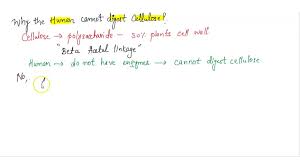 Why the Human cannot digest Cellulose?
Cellulose → polysaccharide – 30% plants cell wall
"Beta Acetal linkage"
Human → do not have enzymes → cannot digest cellulose
No,